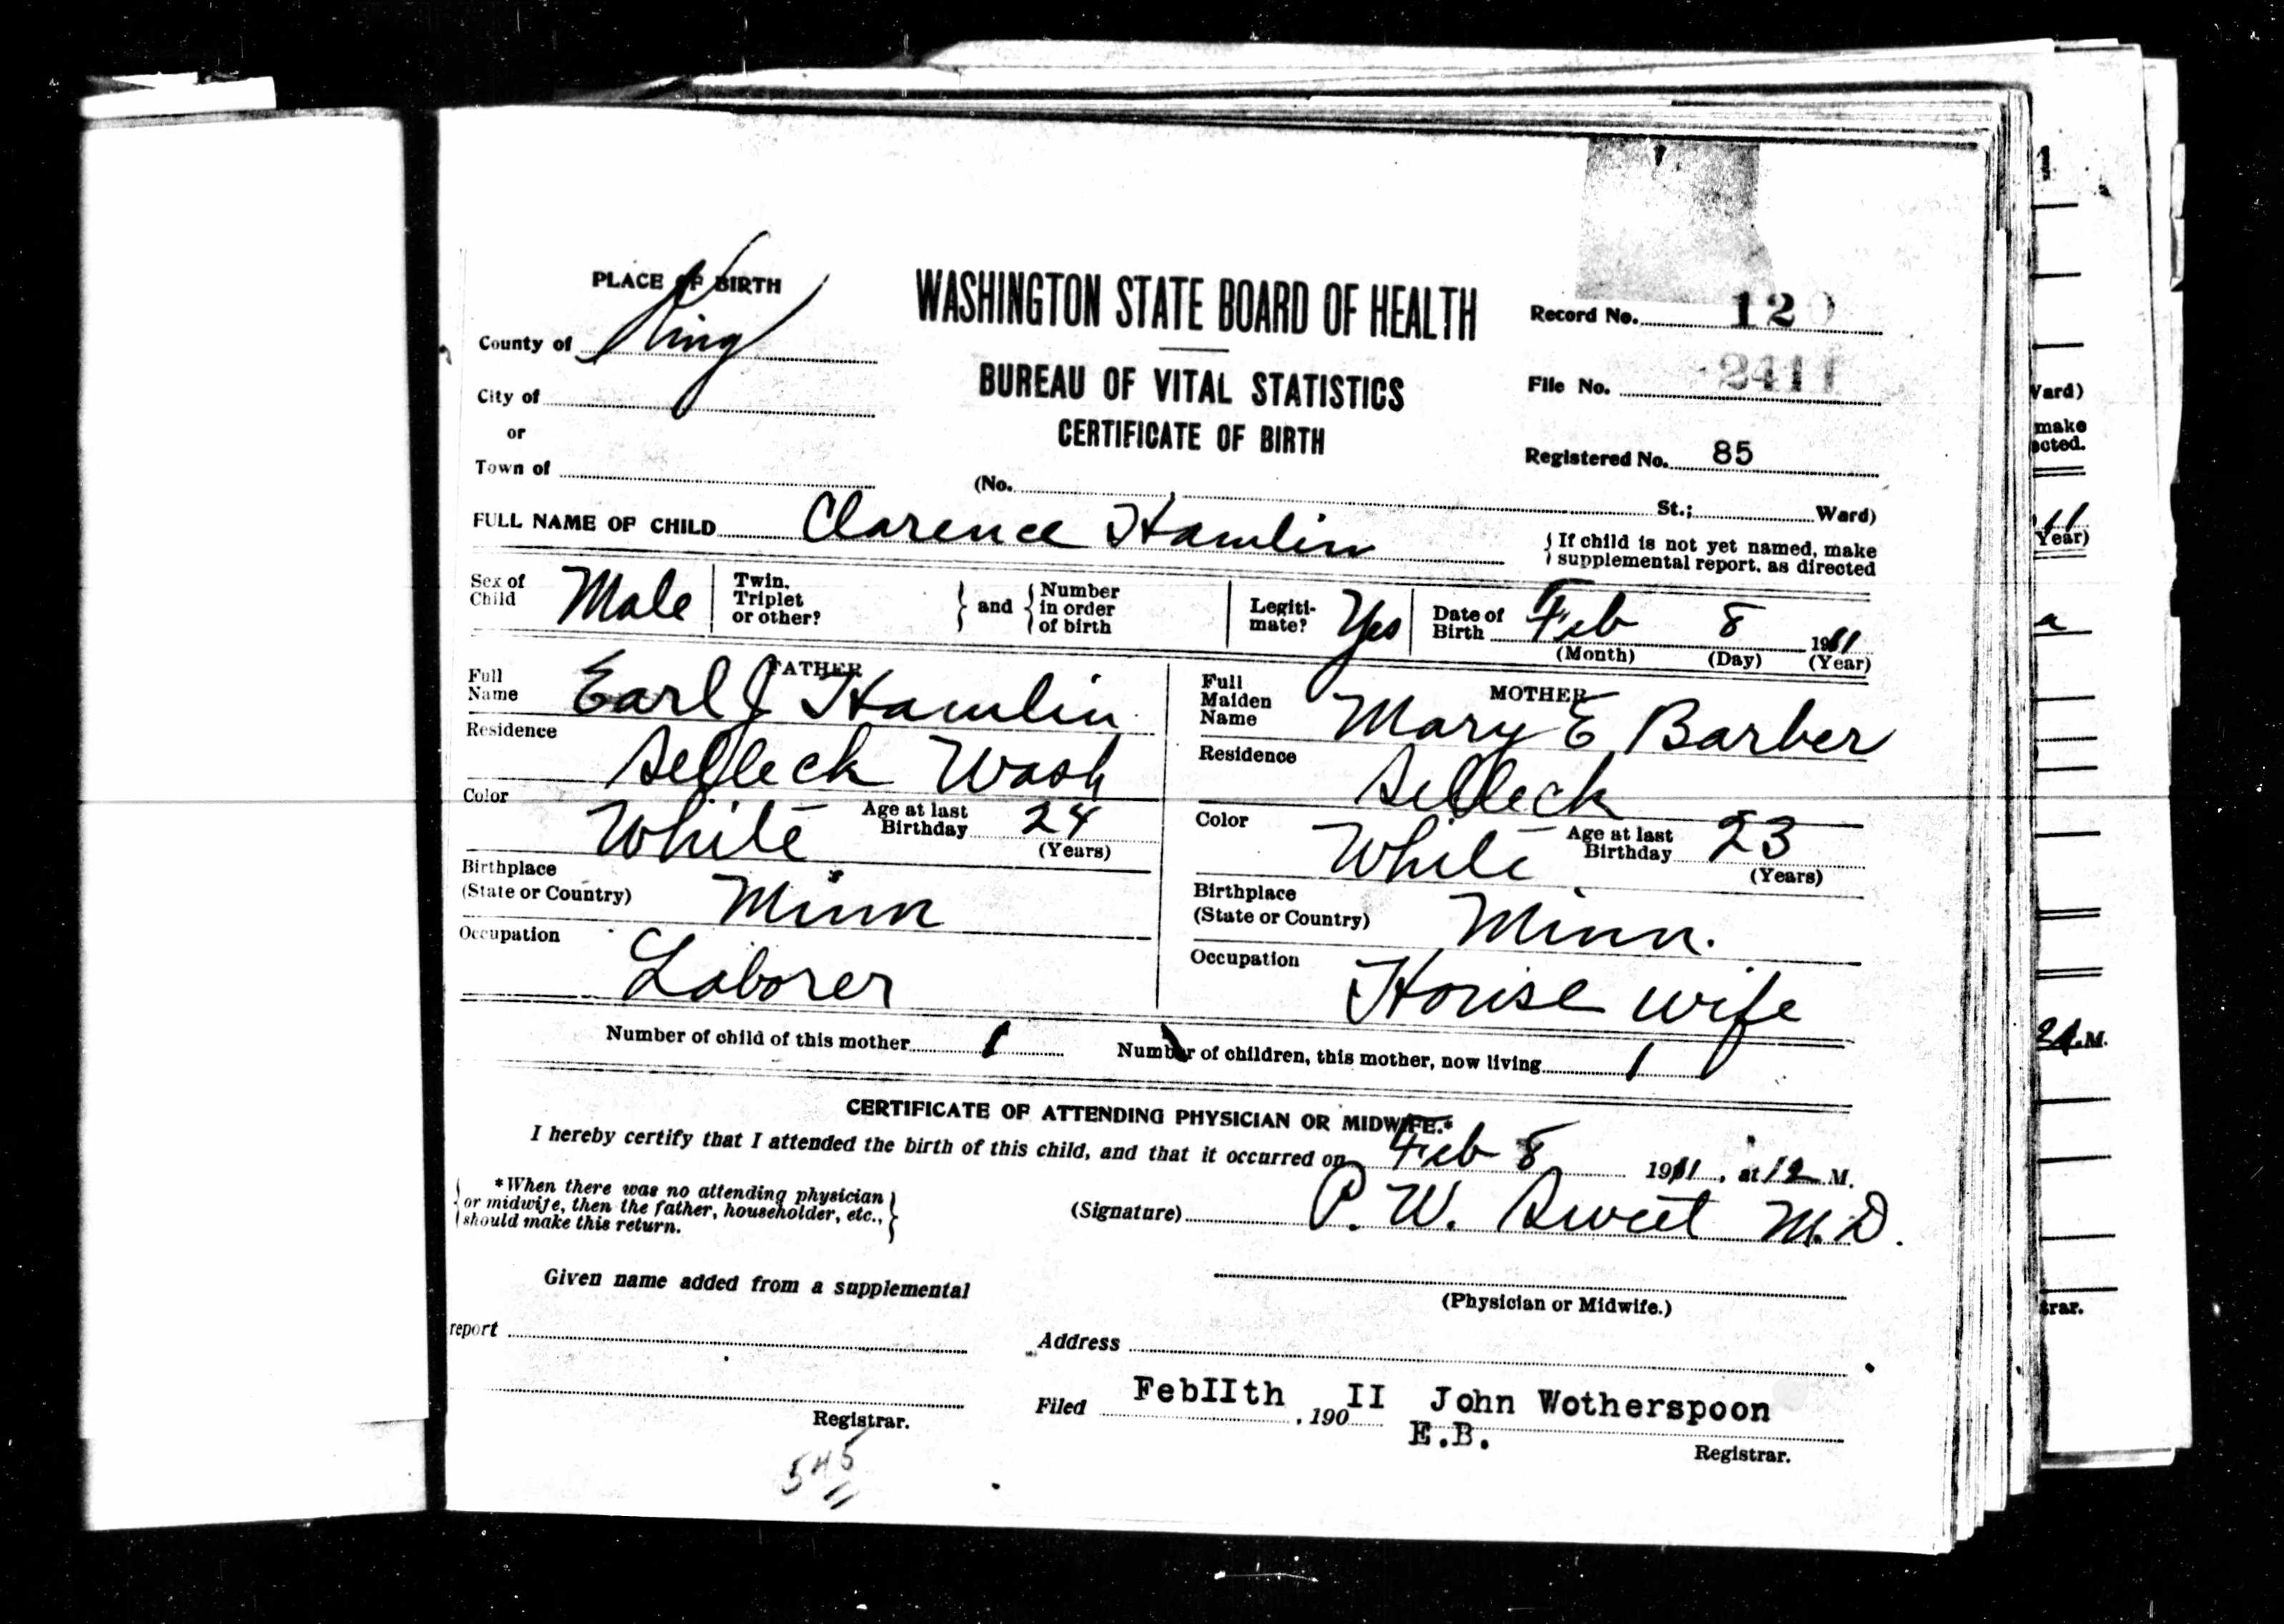 PLACE OF BIRTH
County of King
City of
or
Town of
WASHINGTON STATE BOARD OF HEALTH
BUREAU OF VITAL STATISTICS
CERTIFICATE OF BIRTH
Record No. 120
File No. 2411
Registered No. 85
(No. St.; Ward)
FULL NAME OF CHILD Clarence Hamlin
{ If child is not yet named, make
supplemental report, as directed
Sex of Child Male
Twin, Triplet or other? } and { Number in order of birth
Legiti-mate? Yes
Date of Birth Feb 8 1911
(Month) (Day) (Year)
FATHER
Full Name Earl J Hamlin
Residence Selleck Wash
Color White Age at last Birthday 24
(Years)
Birthplace
(State or Country) Minn
Occupation Laborer
MOTHER
Full Maiden Name Mary E Barber
Residence Selleck
Color White Age at last Birthday 23
(Years)
Birthplace
(State or Country) Minn.
Occupation House wife
Number of child of this mother 1 Number of children, this mother, now living 1
CERTIFICATE OF ATTENDING PHYSICIAN OR MIDWIFE.*
I hereby certify that I attended the birth of this child, and that it occurred on Feb 8 1911, at 12 M.
{ *When there was no attending physician }
or midwife, then the father, householder, etc.,
should make this return.
(Signature) P. W. Sweet M.D.
(Physician or Midwife.)
Given name added from a supplemental
report
Registrar.
Address
Filed FebIIth, 190 II John Wotherspoon
E.B.
Registrar.
545
11
1
Ward)
make
ected.
11
Year)
a
M.
trar.